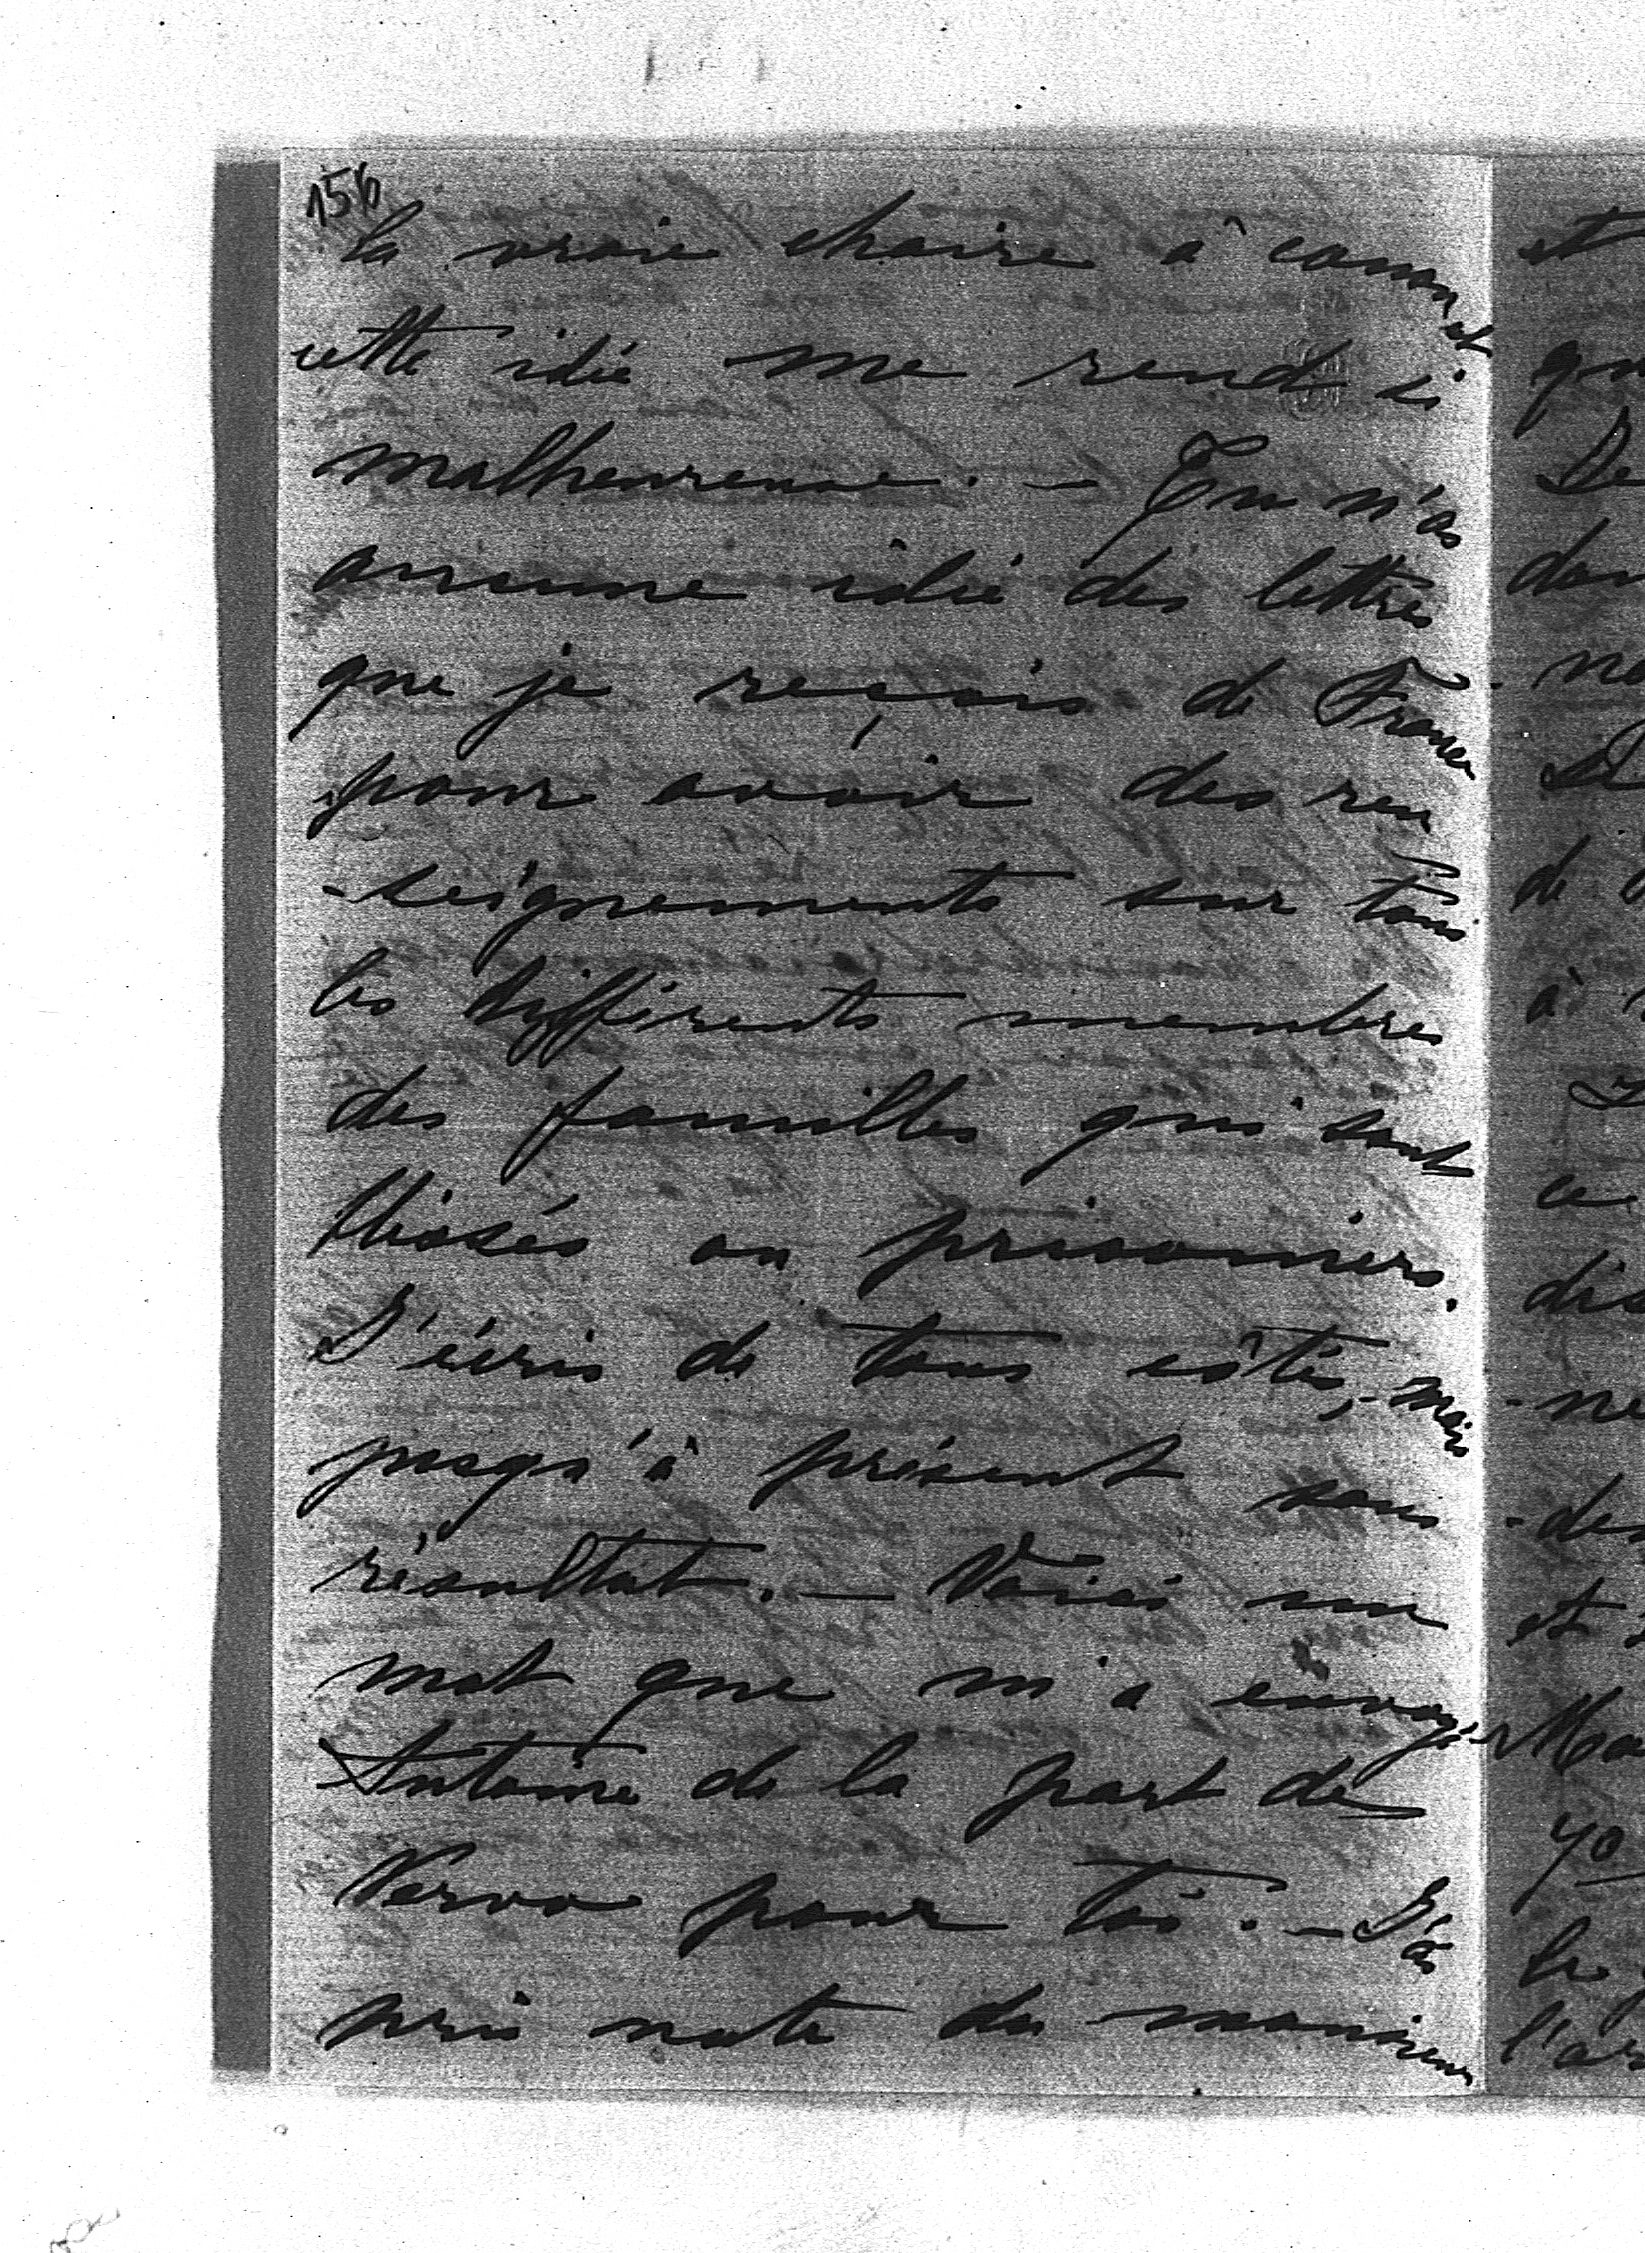 156
la vraie chaire à canon et
cette idée me rend si
malheureuse. — Tu n'as
aucune idée des lettres
que je reçois de France
pour avoir des ren
-seignements sur tous
les différents membres
des familles qui sont
blessés ou prisonniers.
J'écris de tous côtés, - mais
jusqu'à présent sans
résultat. — Voici un
mot que m'a envoyé
Antoine de la part de
pour toi. — J'ai
pris note du monsieur